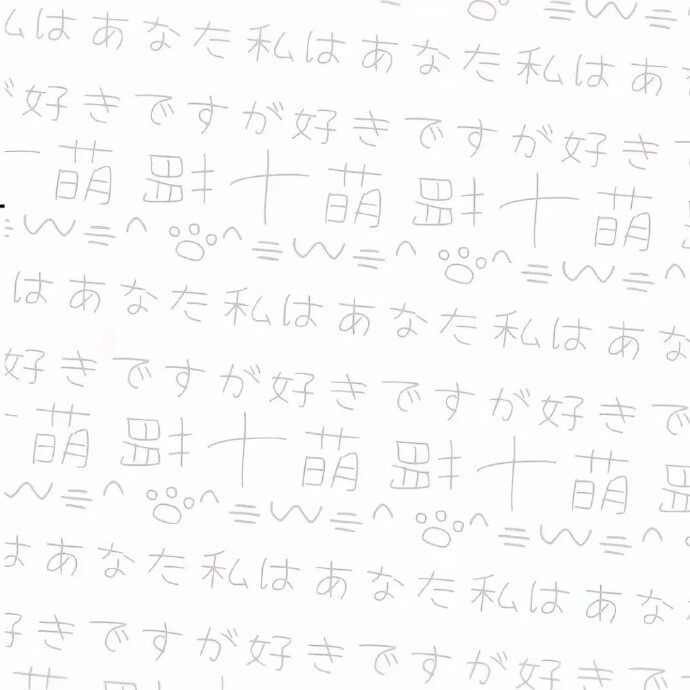 ≡ω≡
はあなた私はあなた私はあ
好きですが好きですが好き
萌 十萌 十萌
≡ω≡^ ^≡ω≡^ ^≡ω≡^
はあなた私はあなた私はあな
好きですが好きですが好きで
萌 十萌 十萌
ω≡^ ^≡ω≡^ ^≡ω≡^
はあなた私はあなた私はあな
きですが好きですが好きで